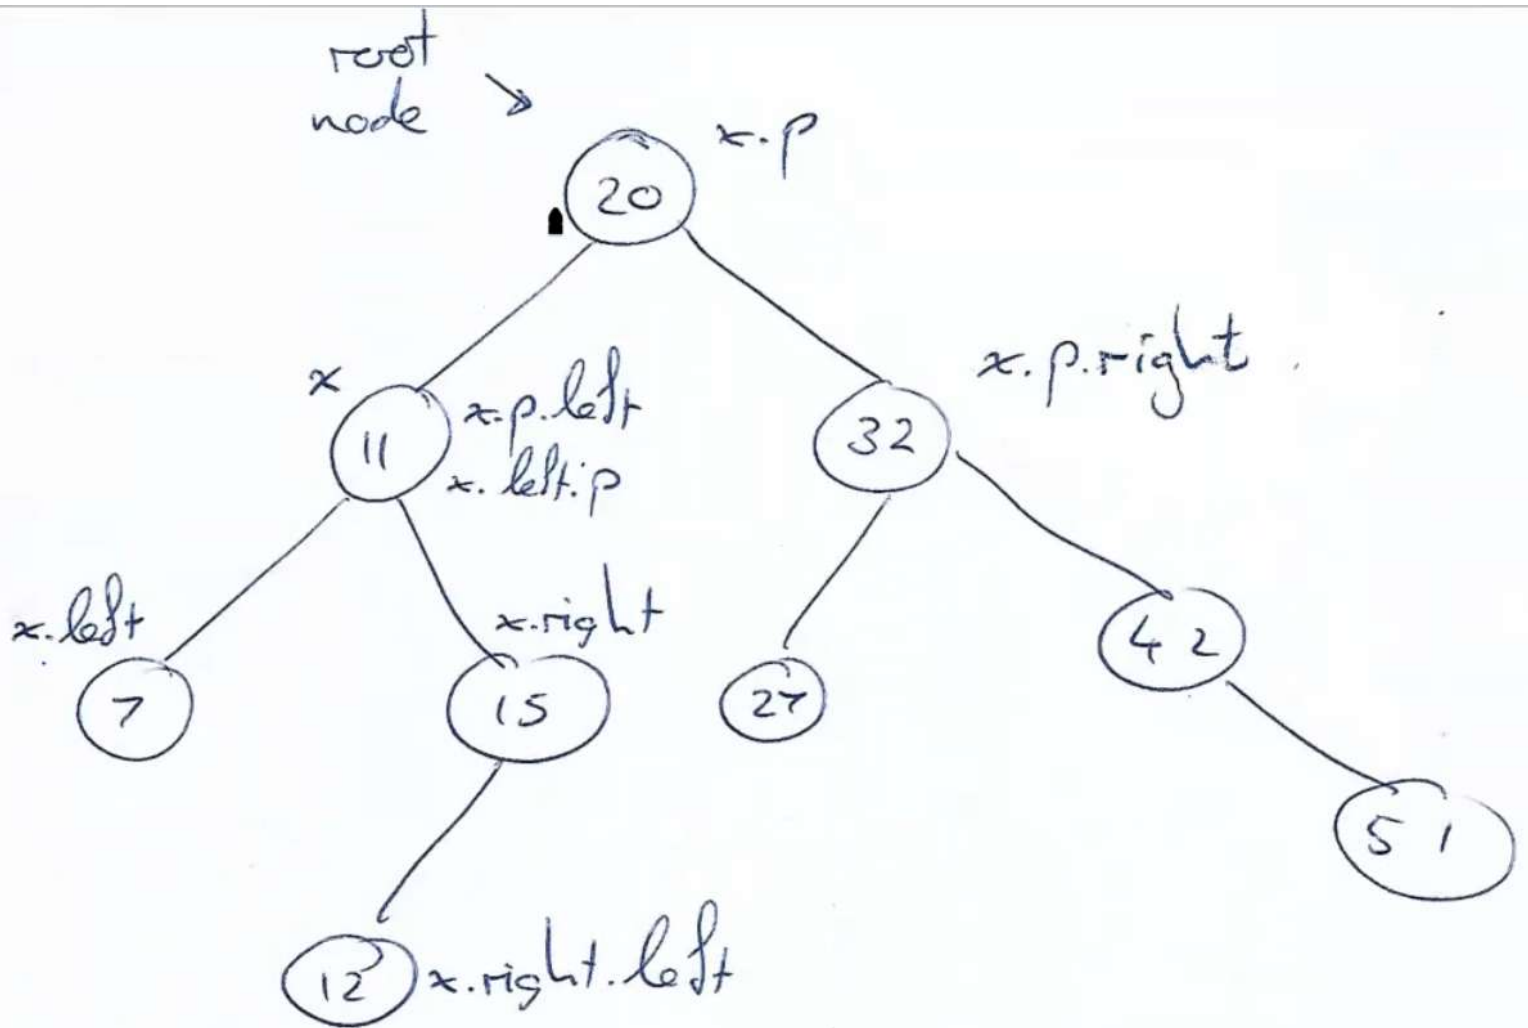 root
node
x.p
20
x
11
x.p.left
x.left.p
32
x.p.right
x.left
7
x.right
15
27
42
51
12
x.right.left